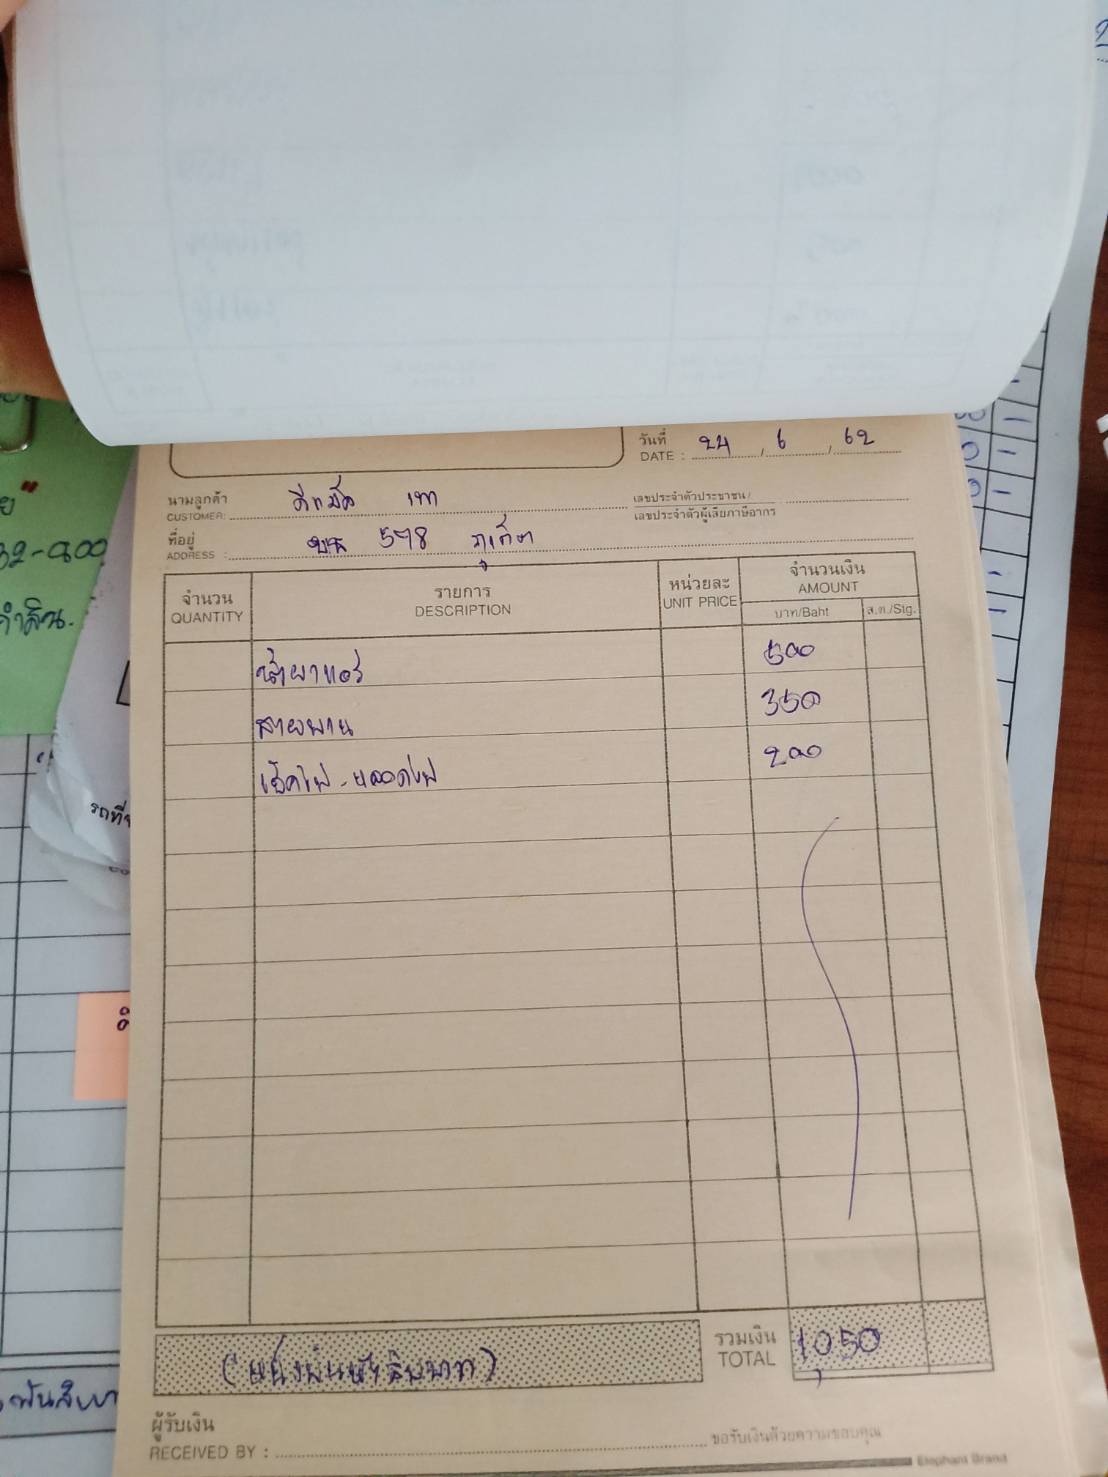 วันที่ 24 / 6 / 62
DATE :
นามลูกค้า ดีแม็ค เทา เลขประจำตัวประชาชน /
CUSTOMER: เลขประจำตัวผู้เสียภาษีอากร
ที่อยู่ บห 578 ภูเก็ต
ADDRESS :
จำนวน รายการ หน่วยละ จำนวนเงิน
QUANTITY DESCRIPTION UNIT PRICE AMOUNT
บาท/Baht ส.ต./Stg.
น้ำยาแอร์ 500
สายพาน 350
เช็คไฟ - หลอดไฟ 200
(หนึ่งพันห้าสิบบาท) รวมเงิน 1,050
TOTAL
ผู้รับเงิน
RECEIVED BY : ขอรับเงินด้วยความขอบคุณ
Elephant Brand
32-900
รถที่